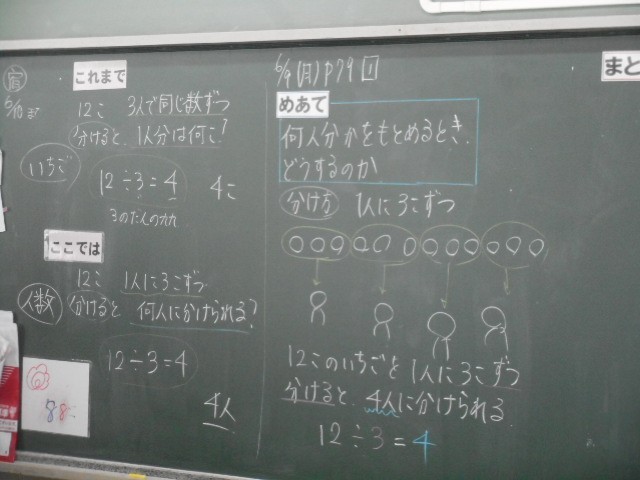 宿
6/10まで
これまで
12こ 3人で同じ数ずつ
分けると、1人分は何こ?
いちご
12÷3=4 4こ
3のだんの九九
ここでは
12こ 1人に3こずつ
人数
分けると 何人にわけられる?
12÷3=4
4人
88
6/9(月)P79 1
めあて
何人分かをもとめるとき、
どうするのか
分け方 1人に3こずつ
12このいちごを 1人に3こずつ
分けると、4人に分けられる
12÷3=4
まと